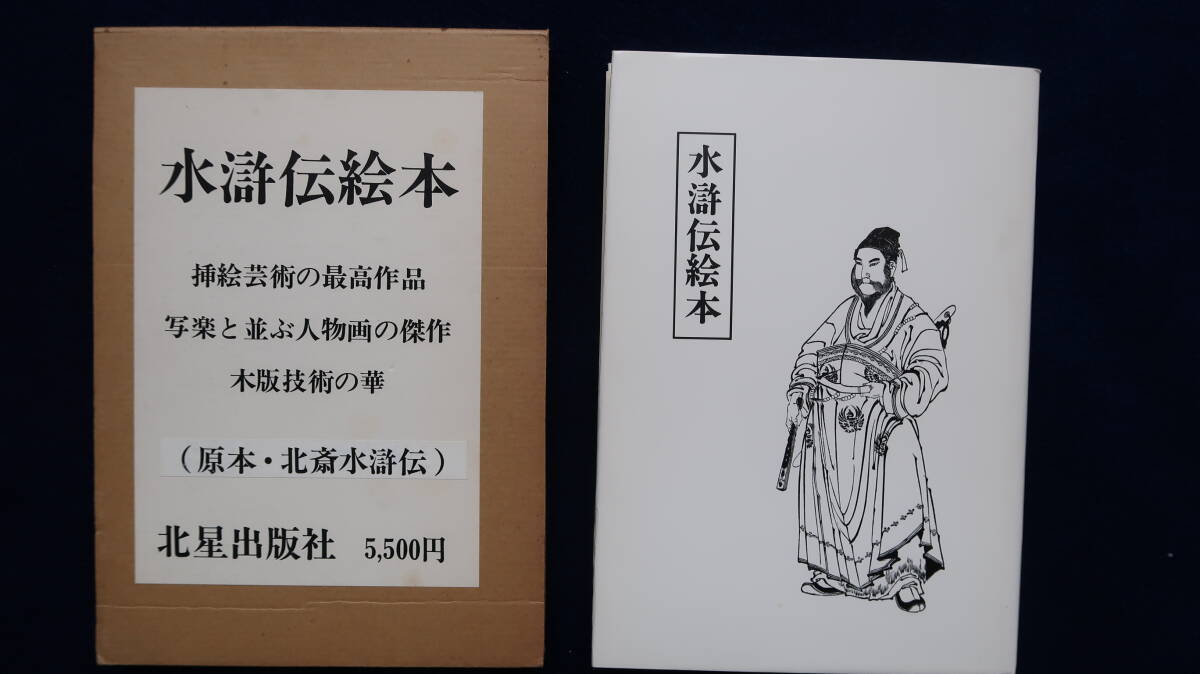 水滸伝絵本
挿絵芸術の最高作品
写楽と並ぶ人物画の傑作
木版技術の華
(原本・北斎水滸伝)
北星出版社 5,500円
水滸伝絵本